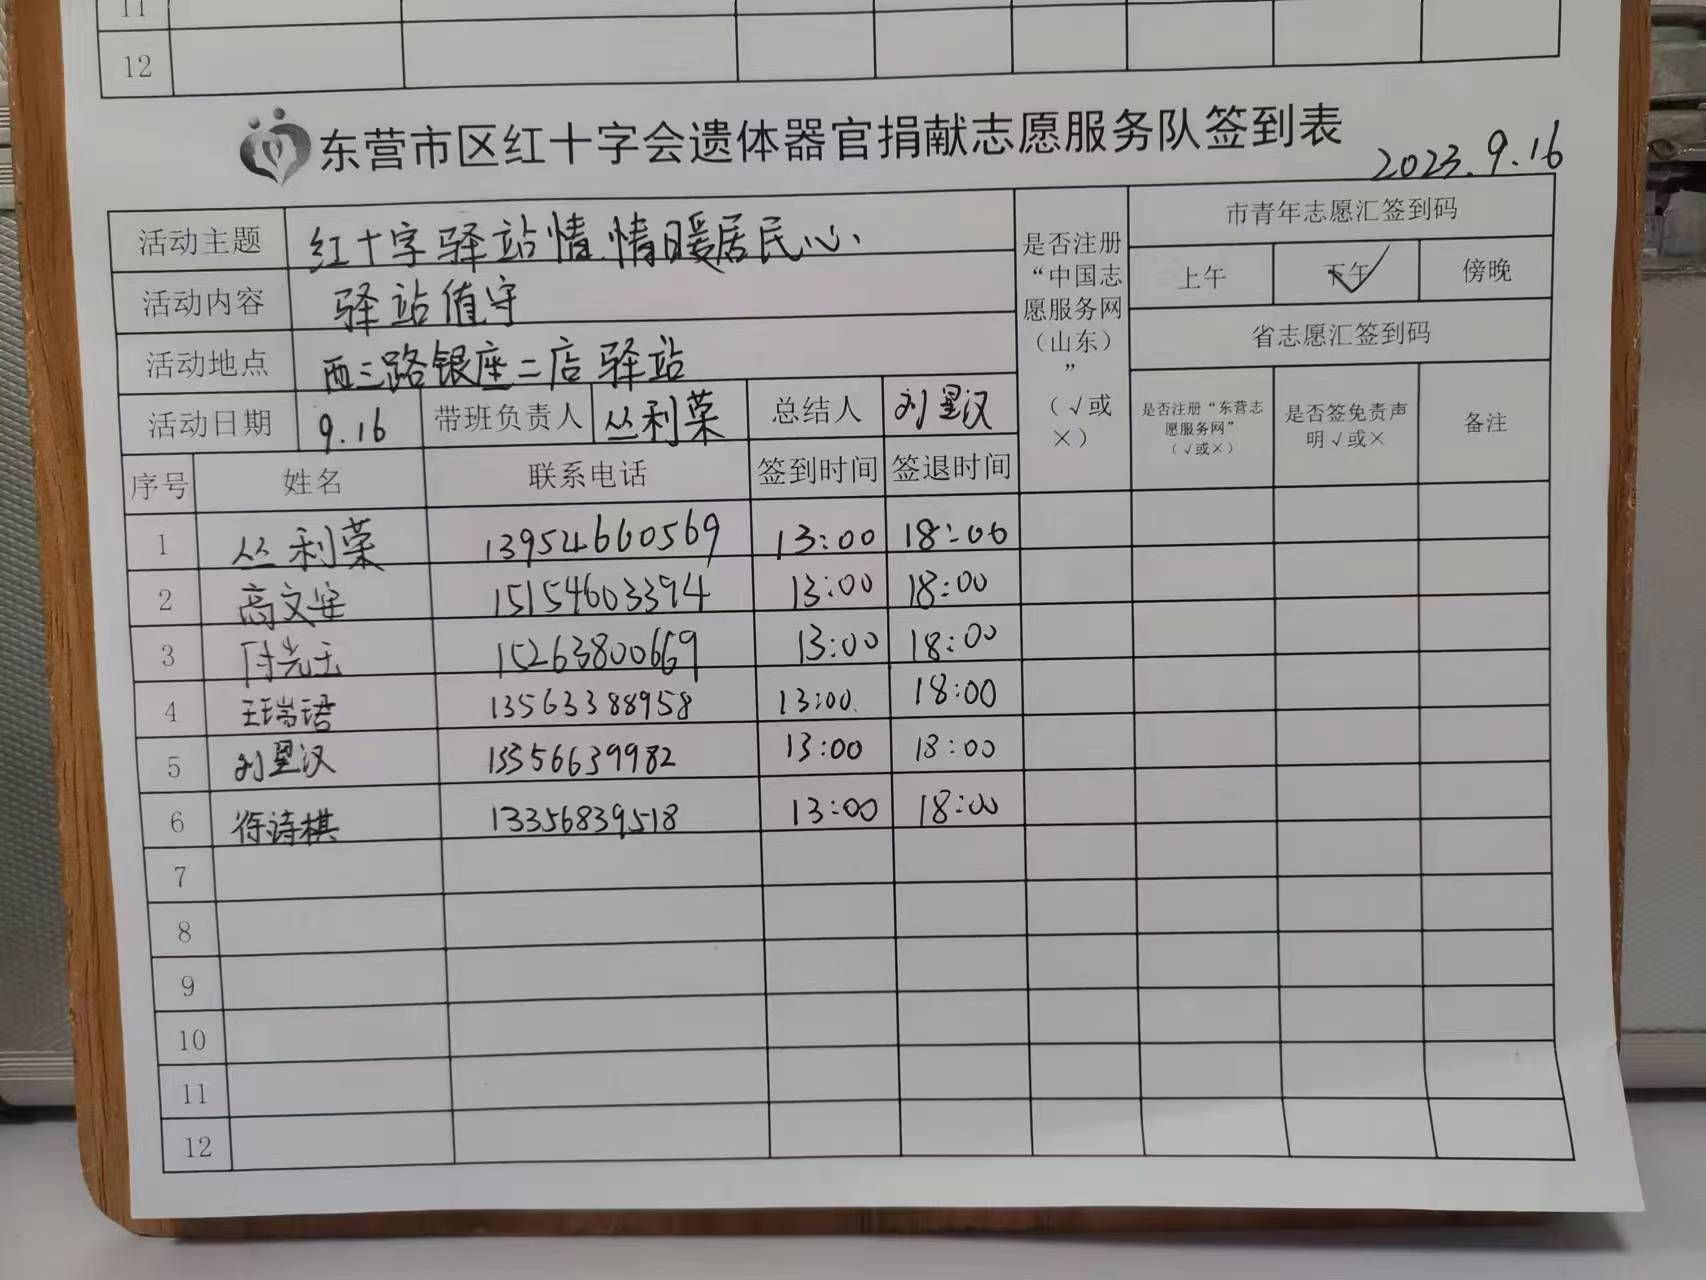 11
12
东营市区红十字会遗体器官捐献志愿服务队签到表
2023.9.16
活动主题 红十字驿站情.情暖居民心、
活动内容 驿站值守
活动地点 西二路银座二店驿站
活动日期 9.16 带班负责人 丛利荣 总结人 刘星汉
是否注册
“中国志
愿服务网
（山东）
”
（√或
×）
市青年志愿汇签到码
上午 下午 傍晚
省志愿汇签到码
是否注册“东营志
愿服务网”
（√或×）
是否签免责声
明√或×
备注
序号 姓名 联系电话 签到时间 签退时间
1 丛利荣 13954660569 13:00 18:00
2 高文安 15154603394 13:00 18:00
3 付先玉 15263800669 13:00 18:00
4 王瑞珺 13563388958 13:00 18:00
5 刘星汉 13356639982 13:00 18:00
6 徐诗棋 13356839518 13:00 18:00
7
8
9
10
11
12